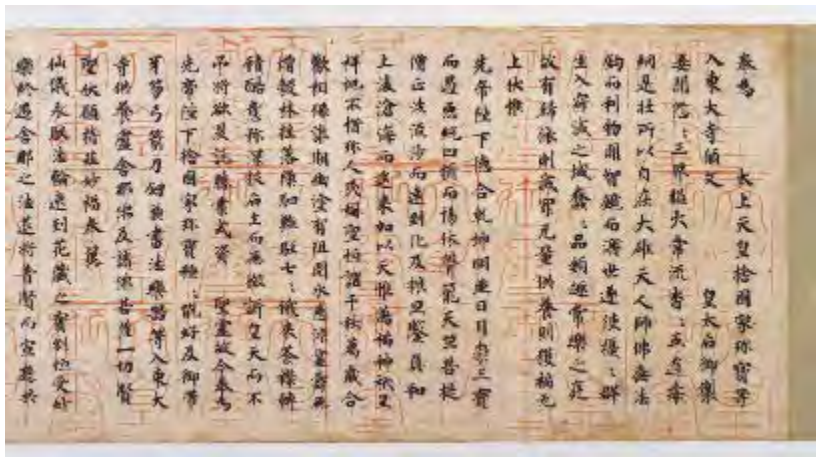 奉為　太上天皇捨國家珍寶等
入東大寺願文　皇太后御製
妾聞悠々三界猛火常流杳々五道毒
網是壯所以自在大雄天人師佛垂法
鈎而利物開智鏡而濟世遂使擾々群
生入寂滅之域蠢々品類趣常樂之庭
故有歸依則滅罪无量供養則獲福无
上伏惟
先帝陛下德合乾坤明並日月崇三寶
而遏惡統四攝而揚休聲籠天竺菩提
僧正涉流沙而遠到化及振旦鑒真和
上凌滄海而遙來加以天惟薦福神祇呈
祥地不惜珍人民稱聖恒謂千秋萬歲合
歡相保誰期幽塗有阻閱水悲涼靈壽無
增穀林搖落隙駟難駐七々俄來荼襟轉
積酷意弥深披后土而無徵訴皇天而不
弔將欲爰託勝業式資　聖靈故今奉為
先帝陛下捨國家珍寶種々翫好及御帶
牙笏弓箭刀劍兼書法樂器等入東大
寺供養盧舍那佛及諸佛菩薩一切賢
聖伏願持茲妙福奉翼
仙儀永馭法輪速到花藏之寶刹恒受妙
樂終遇舍那之法筵將普賢而宣遊共